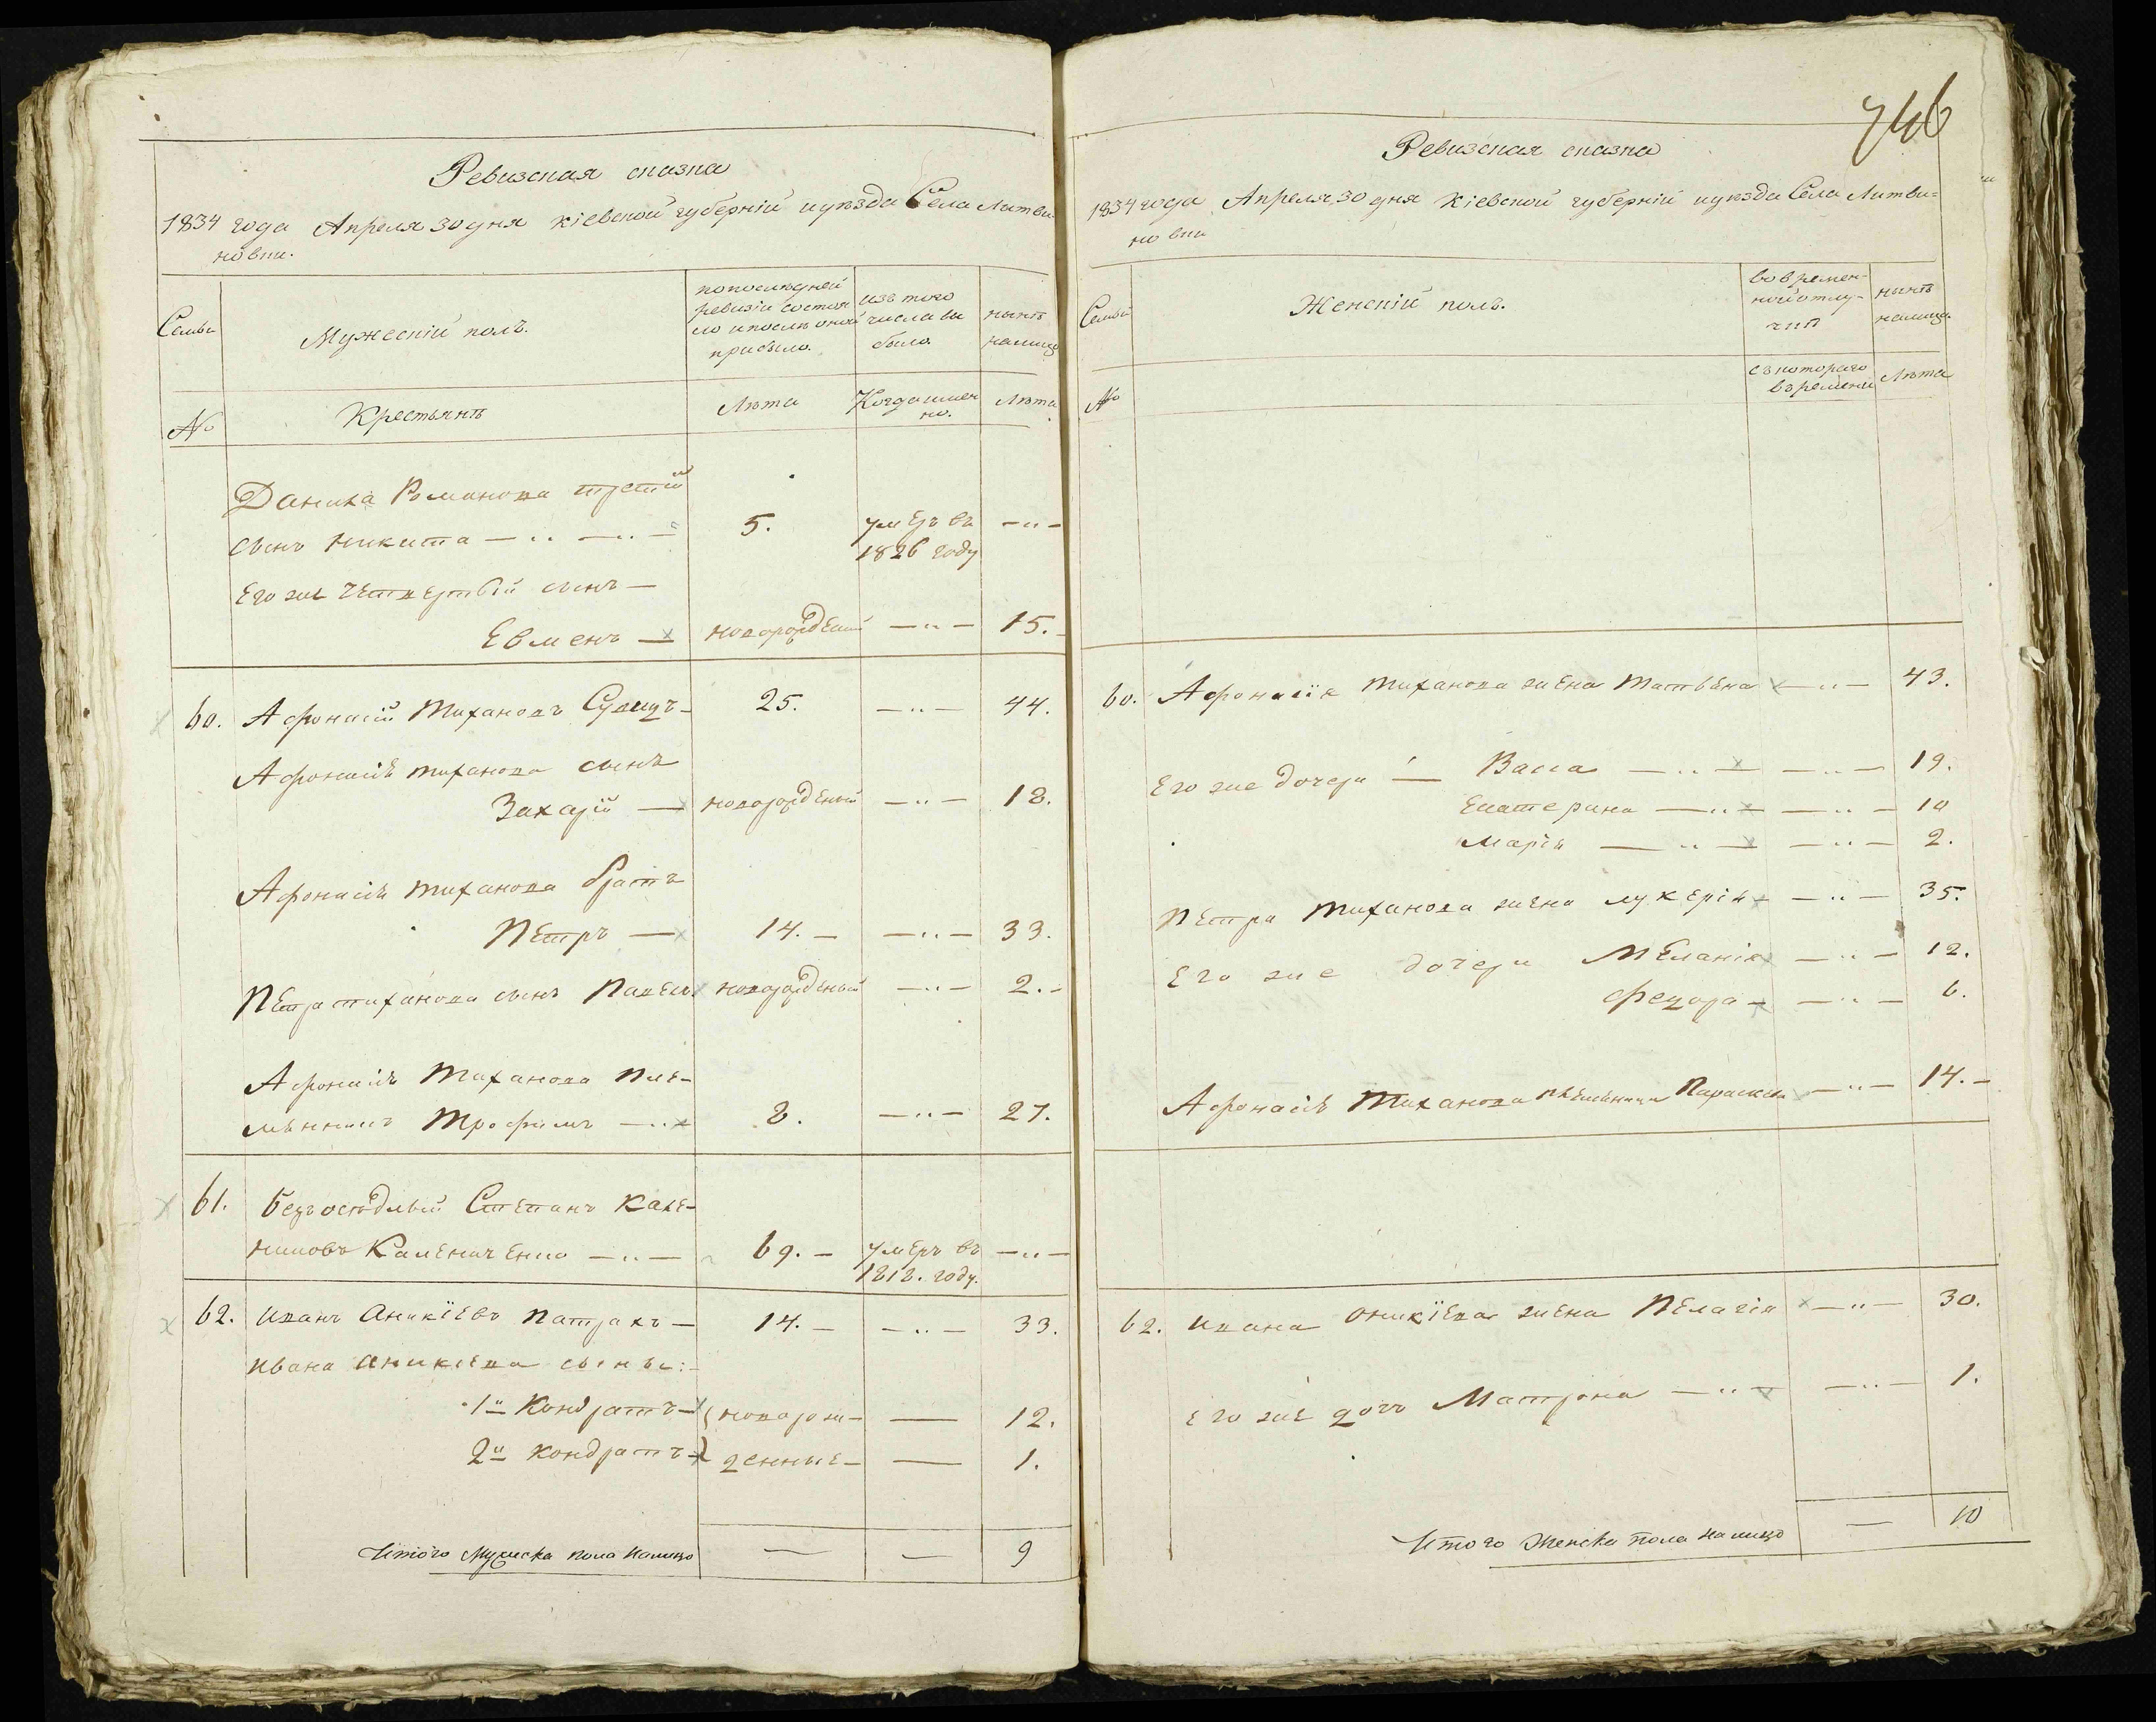 Ревизская сказка
1834 года Апреля 30 дня кіевской губерніи и уѣзда Села Литви-
новки.
Семьи
Мужескій полъ.
по последней
ревизіи состоя
ло и послѣ оной
прибыло.
изъ того
числа вы
было.
нынѣ
налицо
№
Крестьянѣ
Лѣта
Когда имен
но.
Лѣта
Данила Романова третій
сынъ Никита
5.
умеръ въ
1826 году
Его же четвертый сынъ
Евменъ
новорожденный
15.
60. Афонасій Тихановъ
25.
44.
Афонасія тиханова сынъ
Захарій
новорожденный
18.
Афонасія тиханова братъ
Петръ
14.
33.
Петра тиханова сынъ Павелъ
новорожденный
2.
Афонасія Тиханова пле-
мѣнникъ Трофимъ
8.
27.
61. Безъосѣдлый Степанъ Кале-
никовъ Калениченко
69.
умеръ въ
1818. году.
62. Иванъ Аникіевъ Патрахъ
14.
33.
Ивана Аникіева сыны:
1й Кондратъ
новорож-
12.
2й Кондратъ
денные
1.
Итого Мужеска пола налицо
9
746
Ревизская сказка
1834 года Апреля 30 дня Кіевской губерніи и уѣзда Села Литви=
новки
Семьи
Женскій полъ.
во времен-
ной отлу-
чкѣ
нынѣ
налицо
№
съ котораго
времени
Лѣта
60. Афонасія Тиханова жена Татьяна
43.
Его же дочери Васса
19.
Екатерина
10
Марія
2.
Петра Тиханова жена лукерія
35.
Его же дочери Меланія
12.
Федора
6.
Афонасія Тиханова племѣница Параскева
14.
62. Ивана Оникіева жена Пелагія
30.
Его же дочь Матрона
1.
Итого Женска пола налицо
10